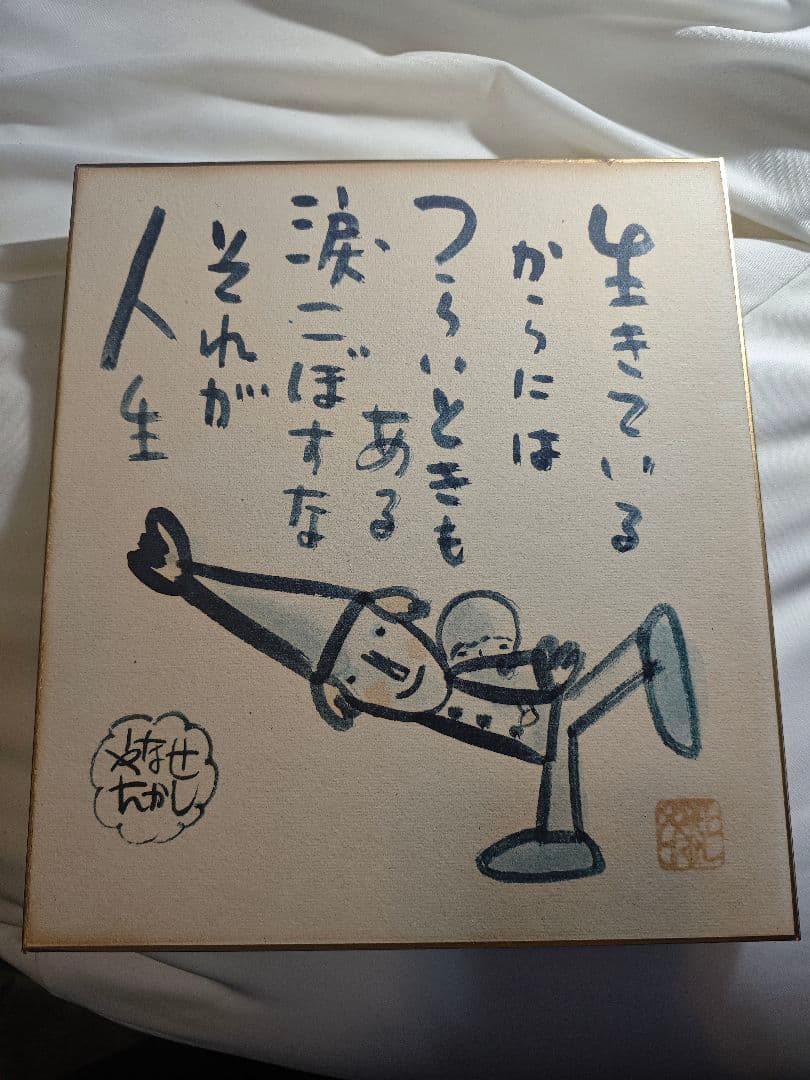 生きている
からには
つらいときも
ある
涙こぼすな
それが
人生
やなせ
たかし